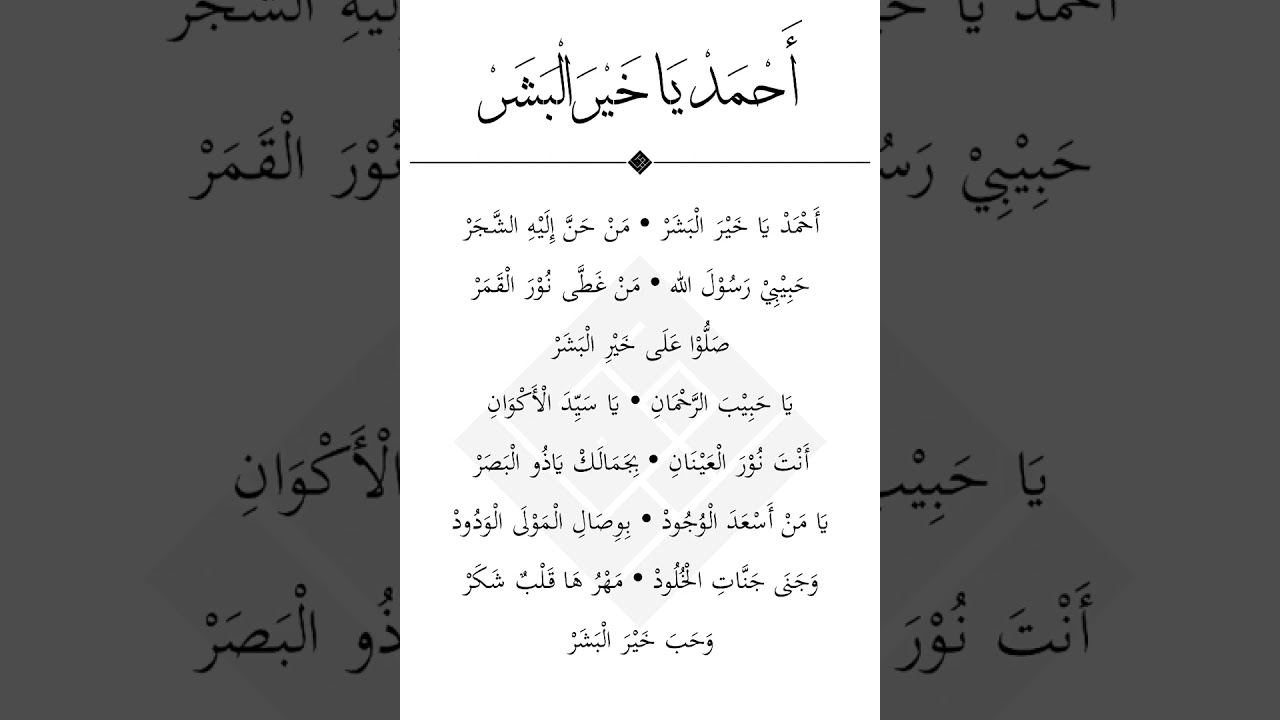 أَحْمَدْ يَا خَيْرَ الْبَشَرْ
أَحْمَدْ يَا خَيْرَ الْبَشَرْ • مَنْ حَنَّ إِلَيْهِ الشَّجَرْ
حَبِيْبِيْ رَسُوْلَ الله • مَنْ غَطَّى نُوْرَ الْقَمَرْ
صَلُّوْا عَلَى خَيْرِ الْبَشَرْ
يَا حَبِيْبَ الرَّحْمَانِ • يَا سَيِّدَ الْأَكْوَانِ
أَنْتَ نُوْرَ الْعَيْنَانِ • بِجَمَالَكْ يَاذُو الْبَصَرْ
يَا مَنْ أَسْعَدَ الْوُجُودْ • بِوِصَالِ الْمَوْلَى الْوَدُودْ
وَجَنَى جَنَّاتِ الْخُلُودْ • مَهْرُ هَا قَلْبٌ شَكَرْ
وَحَبَ خَيْرَ الْبَشَرْ